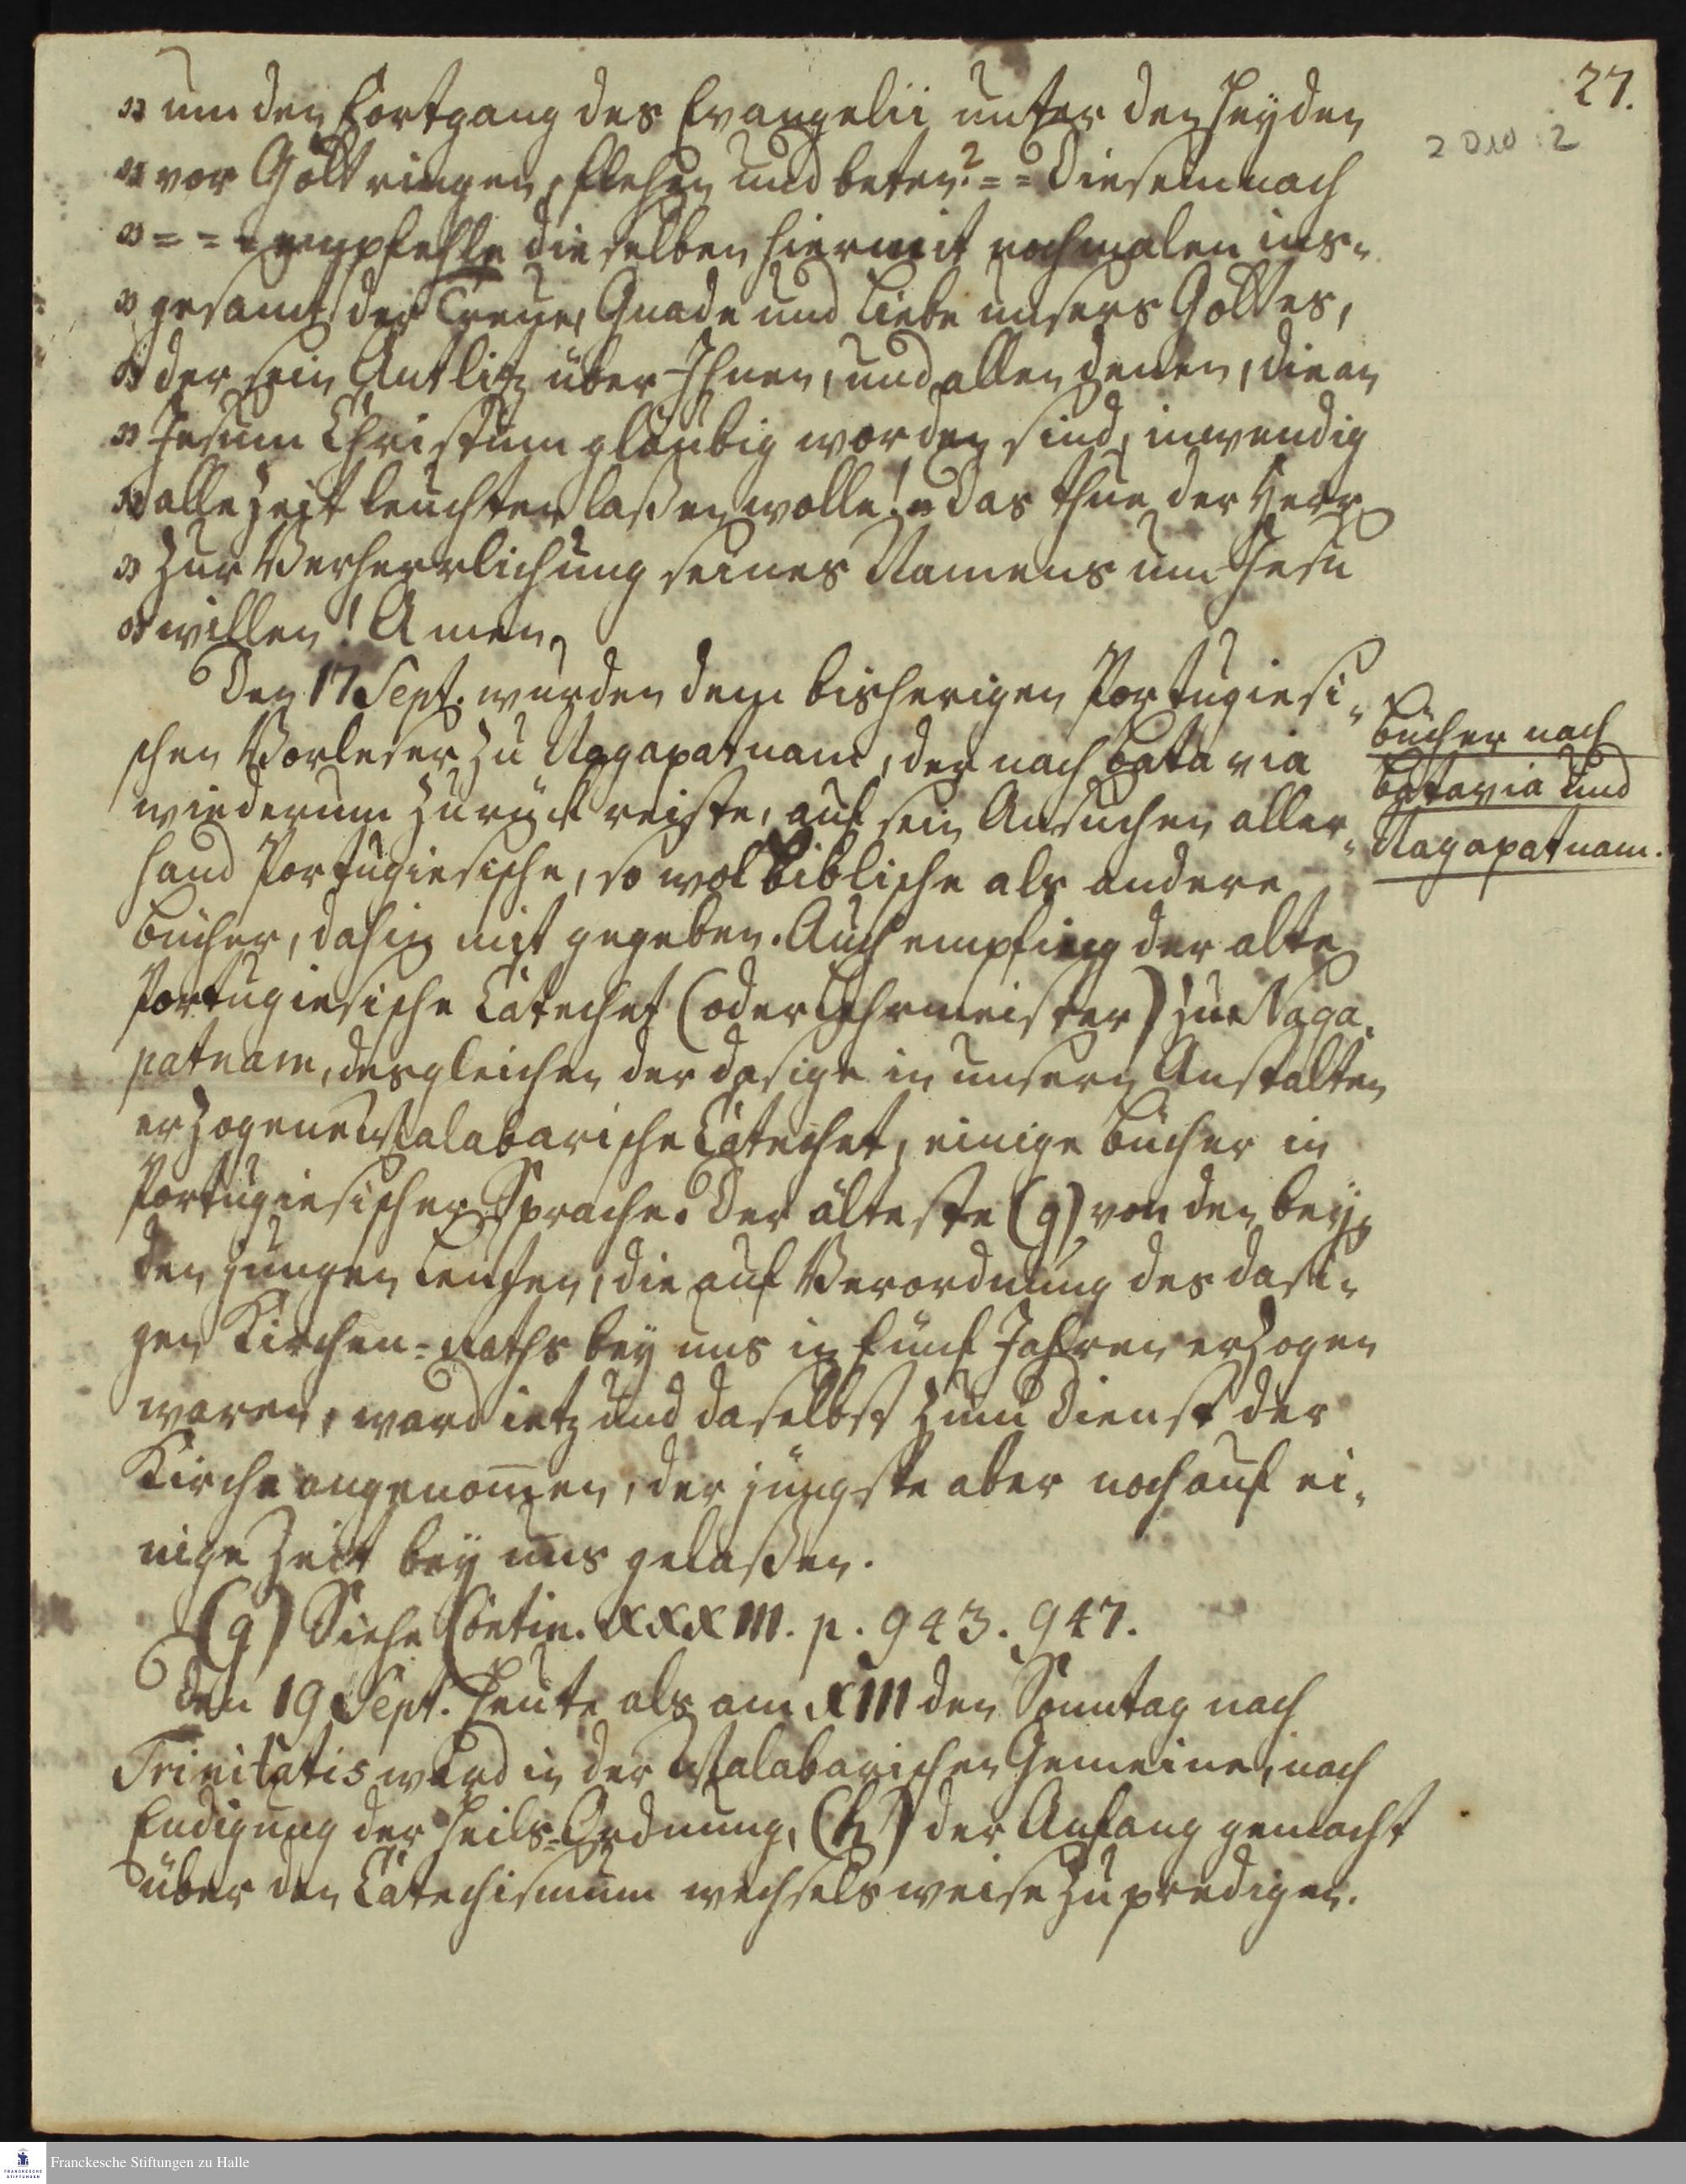 27.
2 D10 : 2
» um den Fortgang des Evangelii unter den Heyden
» vor Gott ringen, flehen und beten? = = Diesemnach
» = = = empfehle dieselben hiermit nochmalen ins-
» gesamt der Treue, Gnade und Liebe unsers Gottes,
» der sein Antlitz über Ihnen, und allen denen, die an
» Jesum Christum gläubig worden sind, inwendig
» allezeit leuchten laßen wolle! = Das thue der Herr
» zur Verherrlichung seines Namens um Jesu
» willen! Amen.
Den 17 Sept. wurden dem bisherigen Portugiesi-
schen Vorleser zu Nagapatnam, der nach Batavia
wiederum zurück reiste, auf sein Ansuchen aller-
hand Portugiesische, so wol Biblische als andere
Bücher, dahin mit gegeben. Auch empfieng der alte
Portugiesische Catechet (oder Lehrmeister) zu Naga-
patnam, desgleichen der dasige in unsern Anstalten
erzogene Malabarische Catechet, einige Bücher in
Portugiesischer Sprache. Der älteste (g) von den bey-
den jungen Leuten, die auf Verordnung des dasi-
gen Kirchen-Raths bey uns in fünf Jahren erzogen
waren, ward ietzund daselbst zum Dienst der
Kirche angenom̄en, der jüngste aber noch auf ei-
nige Zeit bey uns gelaßen.
(g) Siehe Contin. XXXIII. p. 943. 947.
Den 19 Sept. Heute als am XIII den Sonntag nach
Trinitatis ward in der Malabarischen Gemeine, nach
Endigung der Heils-Ordnung, (h) der Anfang gemacht
über den Catechismum wechselsweise zu predigen.
Bücher nach
Batavia und
Nagapatnam.
Franckesche Stiftungen zu Halle